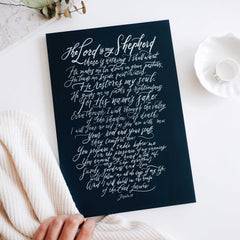 The Lord is my Shepherd
there is nothing I shall want
He makes me lie down in green pastures
He leads me beside quiet waters
He restores my soul
He guides me in paths of righteousness
For His name's sake
Even though I walk through the valley
of the shadow of death
I will fear no evil for you are with me
Your rod and your staff
they comfort me
You prepare a table before me
in the presence of my enemies
You anoint my head with oil
my cup overflows
Surely goodness and
all of my life
And I will dwell in the house
of the Lord forever